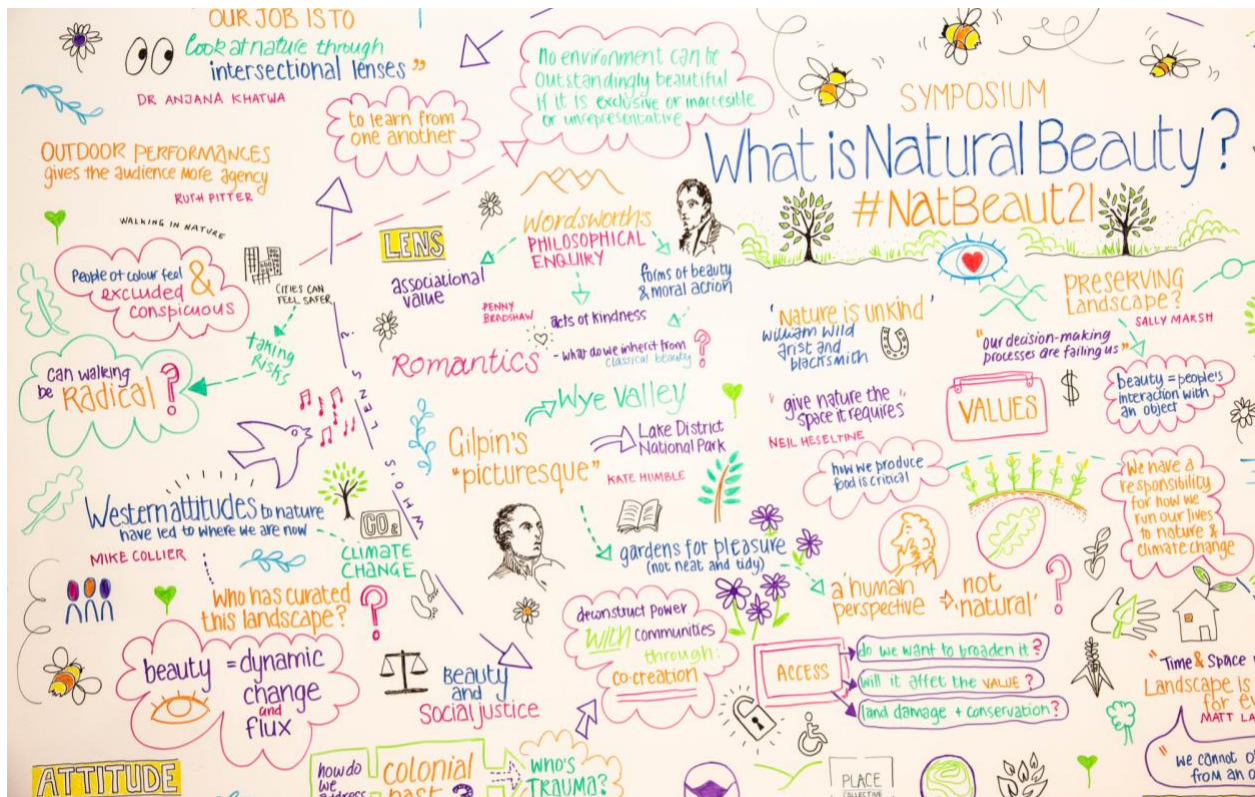 OUR JOB IS TO
look at nature through
intersectional lenses"
DR ANJANA KHATWA
to learn from
one another
No environment can be
outstandingly beautiful
if it is exclusive or inaccesible
or unrepresentative
SYMPOSIUM
What is Natural Beauty?
#NatBeaut21
OUTDOOR PERFORMANCES
gives the audience more agency
RUTH PITTER
WALKING IN NATURE
People of colour feel
excluded &
conspicuous
CITIES CAN
FEEL SAFER
taking
risks
can walking
be Radical?
LENS
associational
value
Wordsworths
PHILOSOPHICAL
ENQUIRY
forms of beauty
& moral action
PENNY
BRADSHAW
acts of kindness
Romantics
- what do we inherit from
classical beauty?
WHO'S LENS?
'Nature is unkind'
William Wild
arist and
blacksmith
PRESERVING
Landscape?
SALLY MARSH
"our decision-making
processes are failing us"
beauty = people's
interaction with
an object
VALUES
$
"give nature the
space it requires"
NEIL HESELTINE
Wye Valley
Gilpin's
"picturesque"
Lake District
National Park
KATE HUMBLE
how we produce
food is critical
We have a
responsibility
for how we
run our lives
to nature &
climate change
Western attitudes to nature
have led to where we are now
MIKE COLLIER
CO2
CLIMATE
CHANGE
gardens for pleasure
(not neat and tidy)
a 'human
perspective
not
'natural'?
Who has curated
this landscape?
beauty = dynamic
change
and
flux
Beauty
and
Social justice
deconstruct power
WITH communities
through:
co-creation
ACCESS
do we want to broaden it?
will it affet the VALUE?
land damage + conservation?
"Time & Space
Landscape is
for
MATT
"we cannot
from an
ATTITUDE
how do
we
colonial
past?
WHO'S
TRAUMA?
PLACE
COLLECTIVE